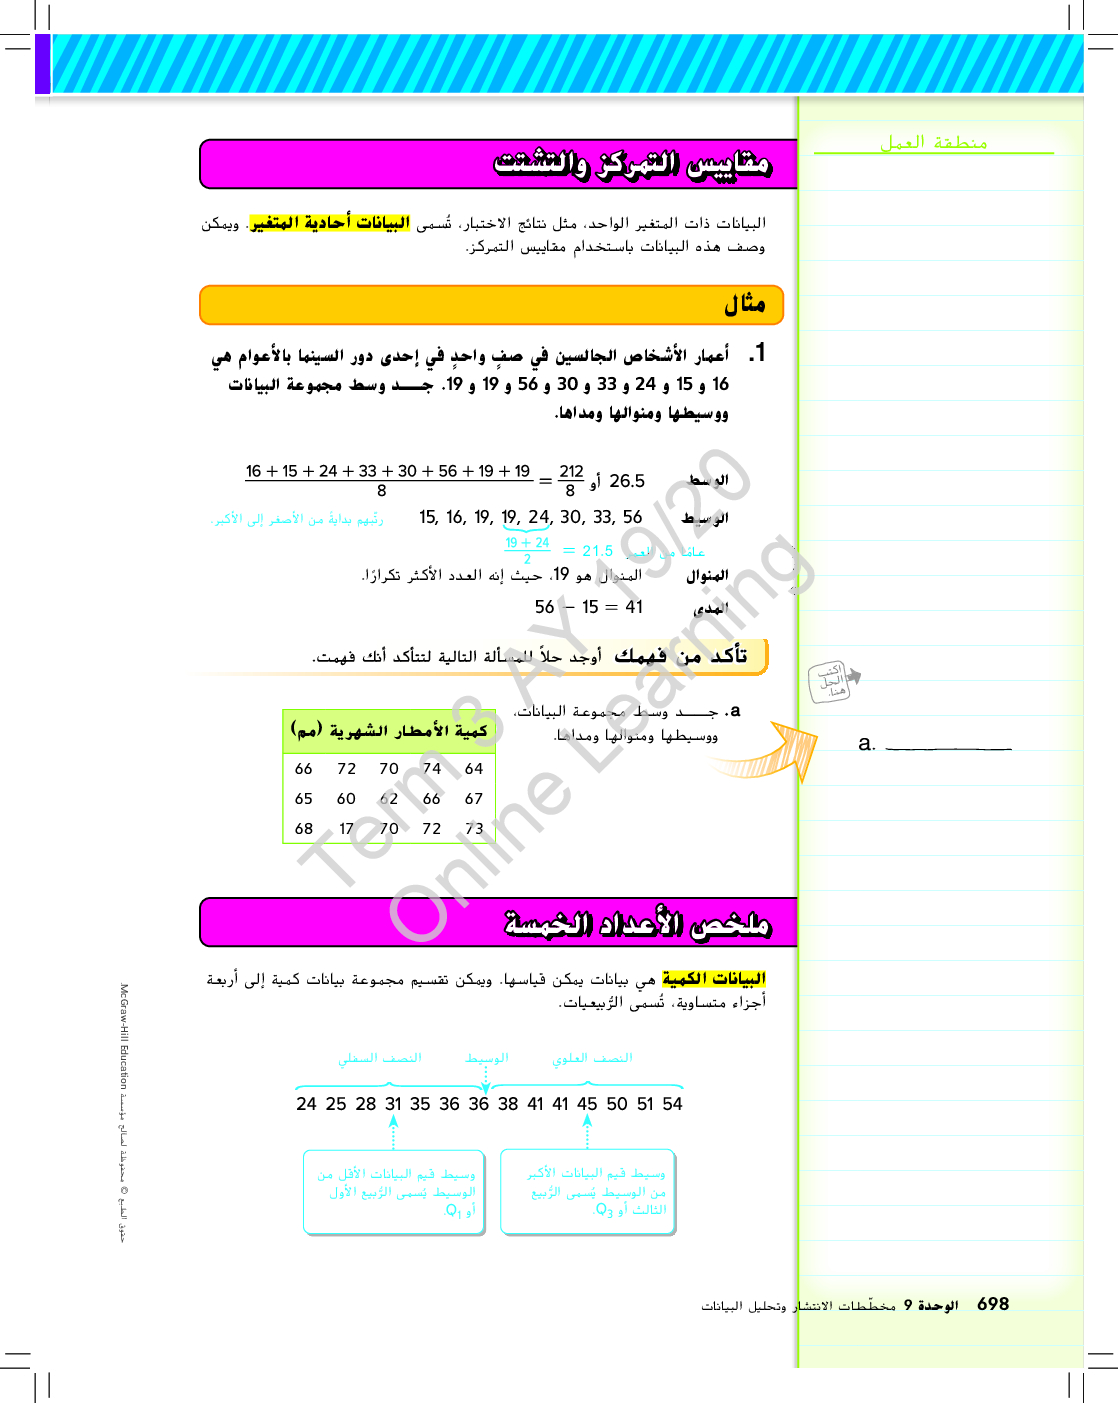 منطقة العمل
مقاييس التمركز والتشتت
البيانات ذات المتغير الواحد، مثل نتائج الاختبار، تُسمى البيانات أحادية المتغير. ويمكن
وصف هذه البيانات باستخدام مقاييس التمركز.
مثال
1. أعمار الأشخاص الجالسين في صفٍ واحدٍ في إحدى دور السينما بالأعوام هي
16 و 15 و 24 و 33 و 30 و 56 و 19 و 19. جــــد وسط مجموعة البيانات
ووسيطها ومنوالها ومداها.
الوسط 26.5 أو 212/8 = (16 + 15 + 24 + 33 + 30 + 56 + 19 + 19)/8
الوسيط 15, 16, 19, 19, 24, 30, 33, 56 رتّبهم بدايةً من الأصغر إلى الأكبر.
(19 + 24)/2 = 21.5 عامًا من العمر
المنوال المنوال هو 19، حيث إنه العدد الأكثر تكرارًا.
المدى 56 − 15 = 41
تأكد من فهمك أوجد حلاً للمسألة التالية لتتأكد أنك فهمت.
اكتب
الحل
هنا.
a. جــــد وسط مجموعة البيانات،
ووسيطها ومنوالها ومداها.
a. ___________
كمية الأمطار الشهرية (مم)
66 72 70 74 64
65 60 62 66 67
68 17 70 72 73
ملخص الأعداد الخمسة
البيانات الكمية هي بيانات يمكن قياسها. ويمكن تقسيم مجموعة بيانات كمية إلى أربعة
أجزاء متساوية، تُسمى الرُّبيعيات.
النصف العلوي الوسيط النصف السفلي
24 25 28 31 35 36 36 38 41 41 45 50 51 54
وسيط قيم البيانات الأكبر
من الوسيط يُسمى الرُّبيع
الثالث أو Q3.
وسيط قيم البيانات الأقل من
الوسيط يُسمى الرُّبيع الأول
أو Q1.
698 الوحدة 9 مخطّطات الانتشار وتحليل البيانات
حقوق الطبع © محفوظة لصالح مؤسسة McGraw-Hill Education.
Term 3 AY 19/20
Online Learning